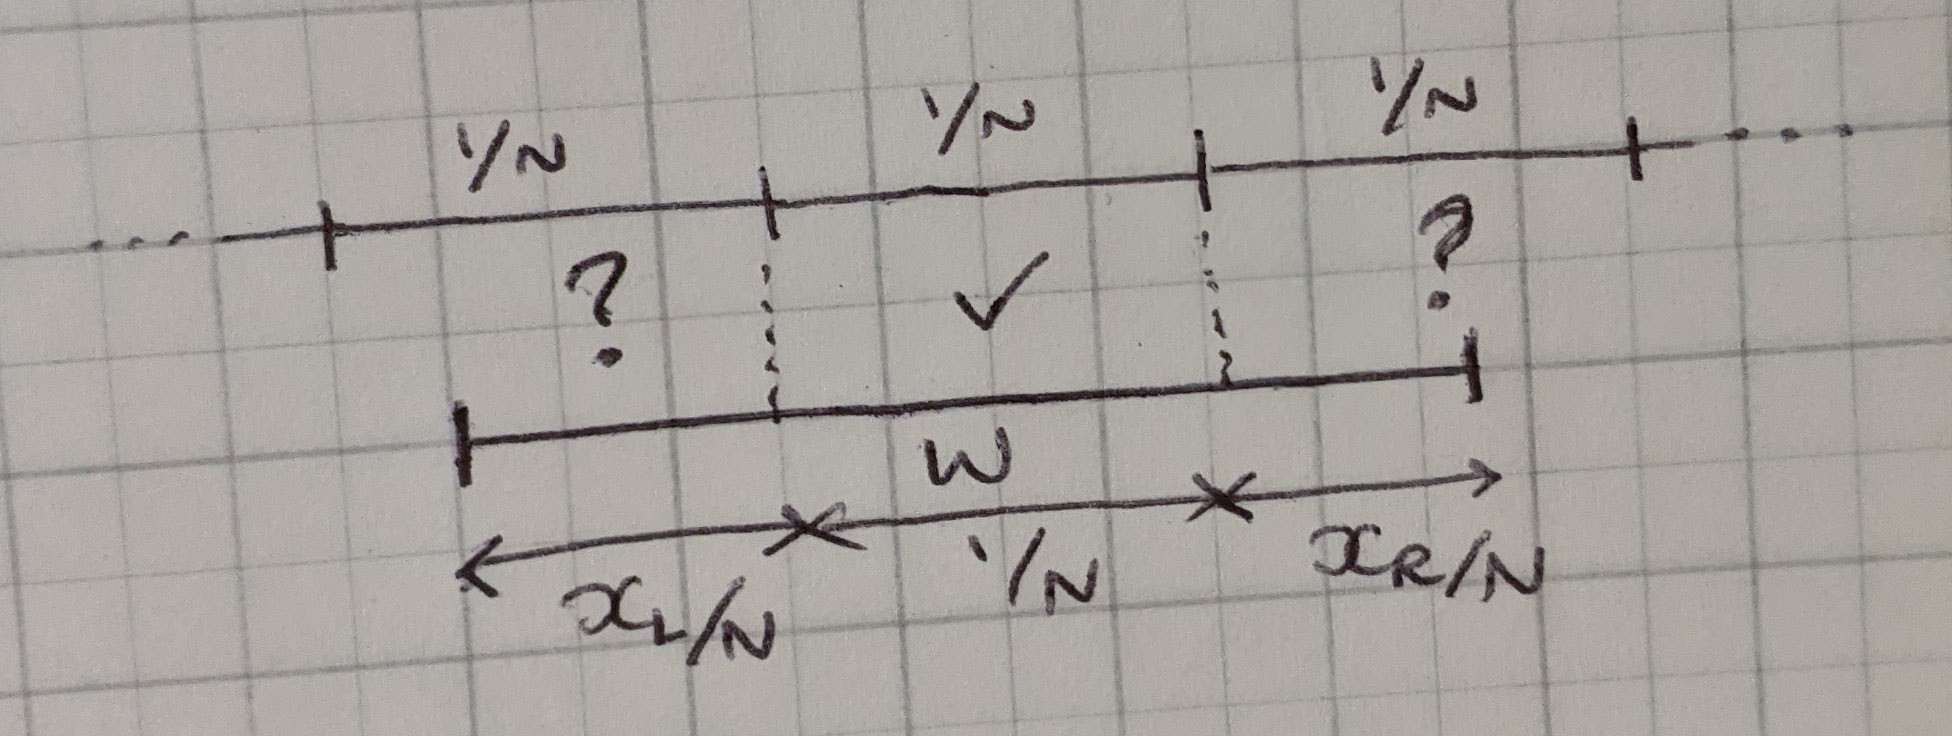 1/N 1/N 1/N
? ✓ ?
W
x_L/N 1/N x_R/N